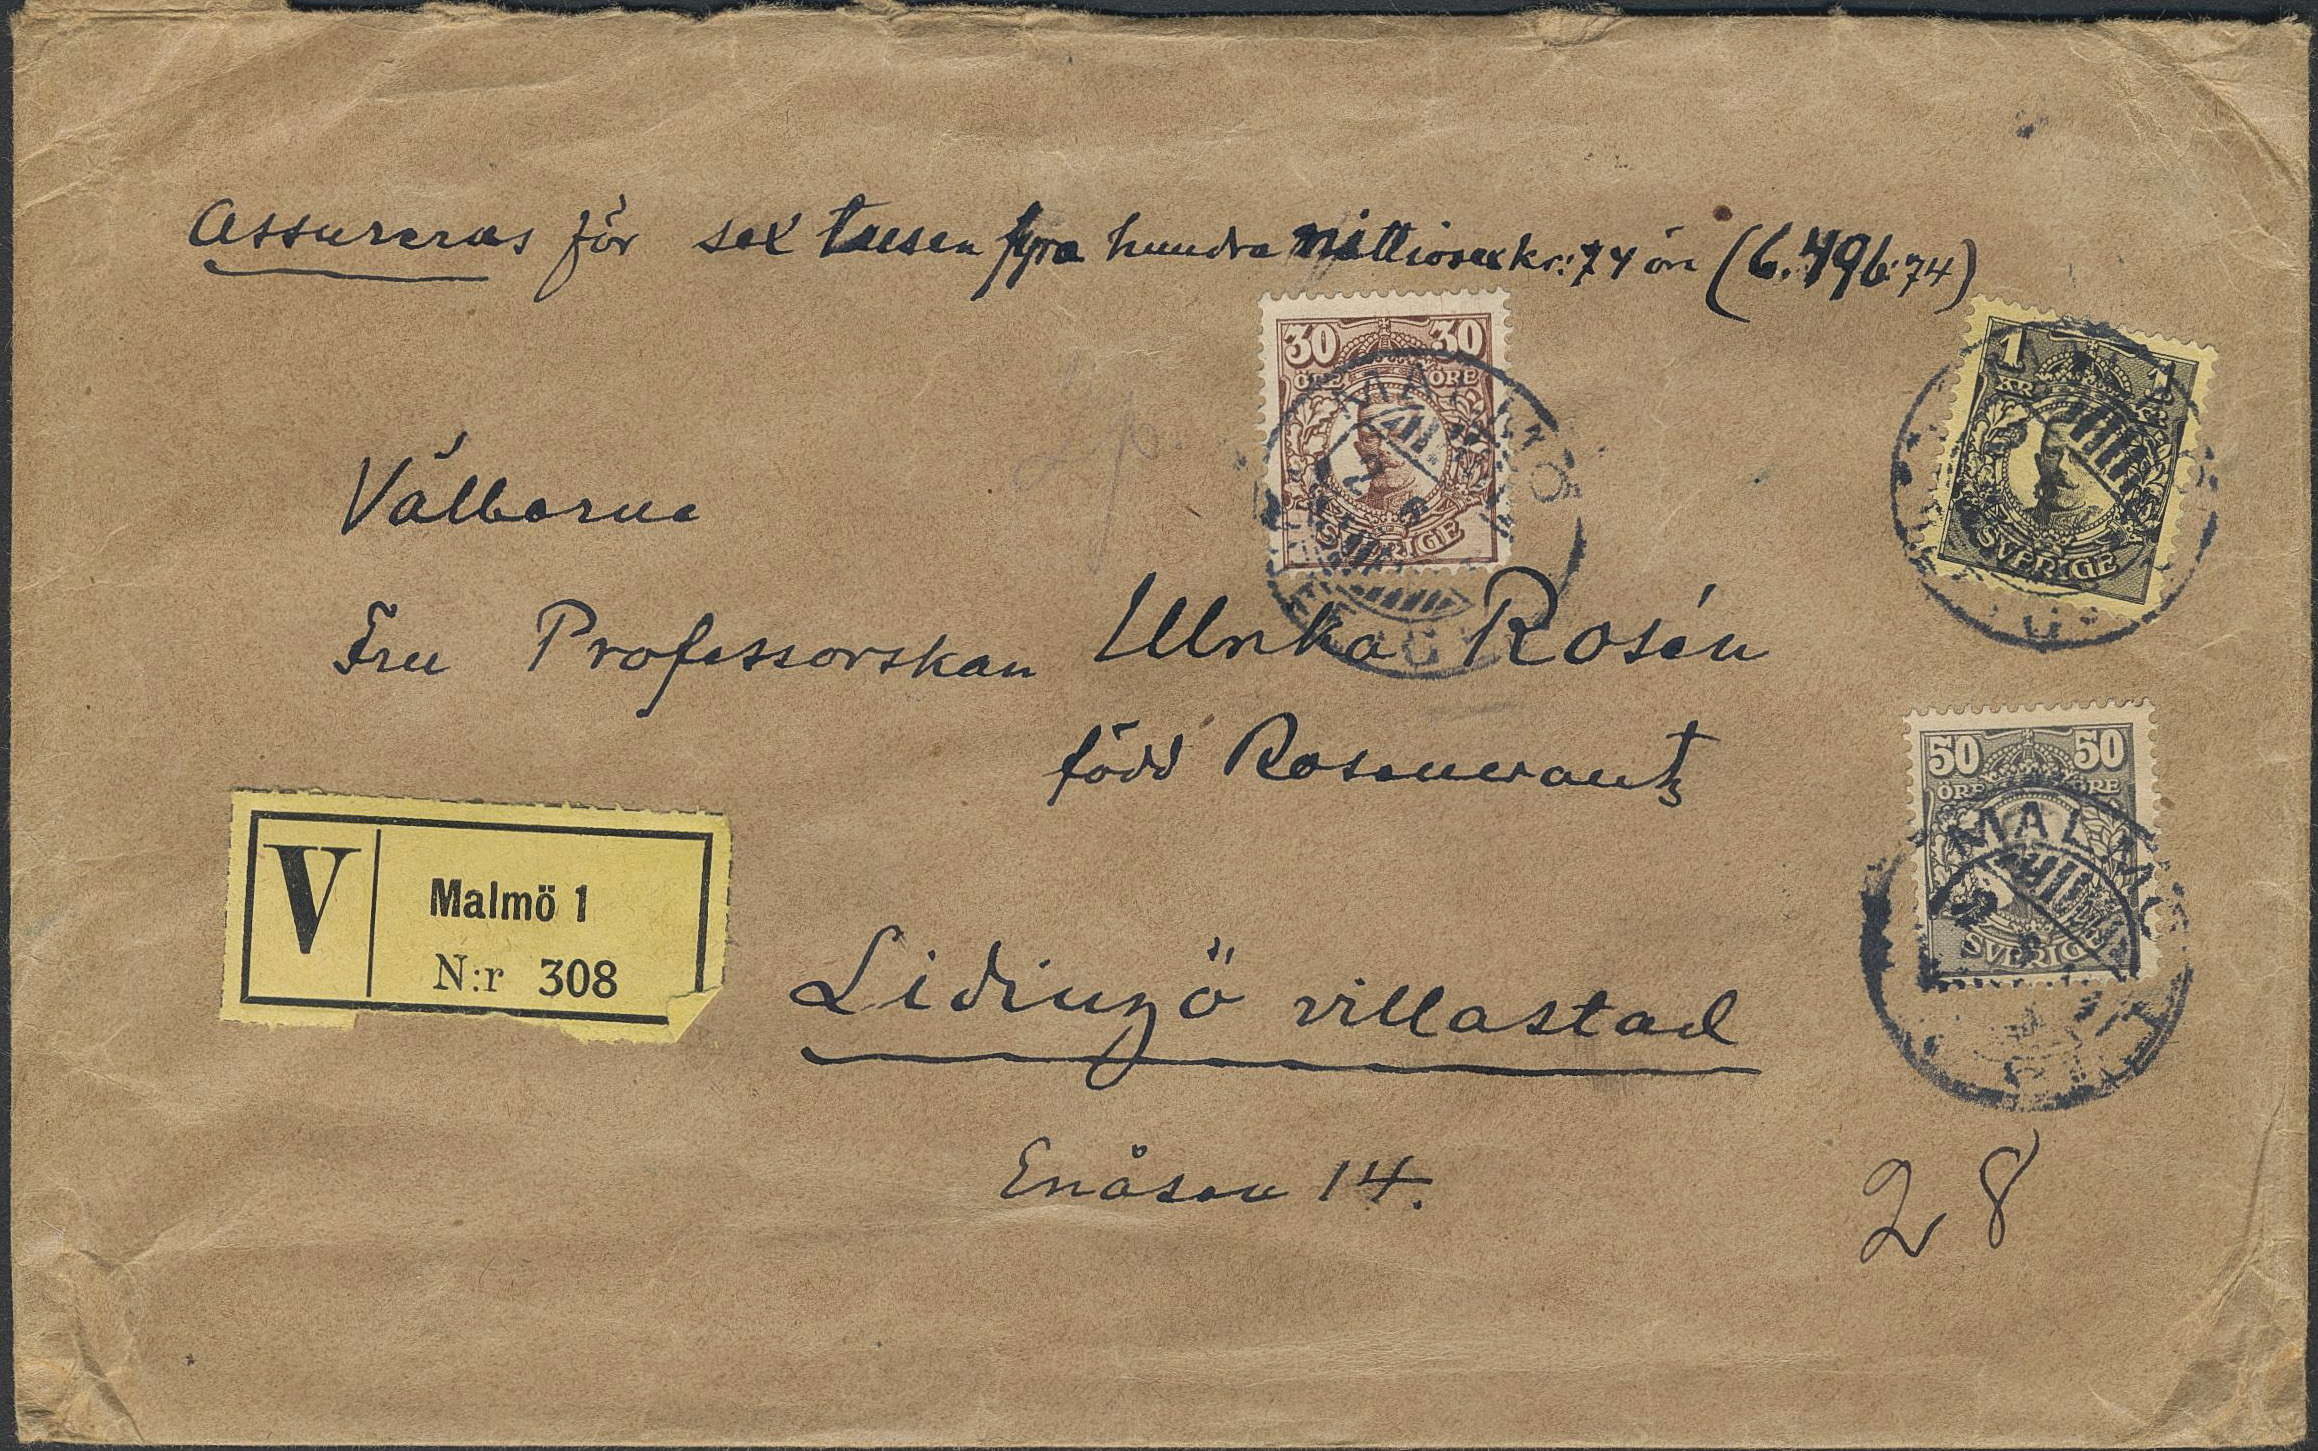 Assureras för sex tusen fyra hundra nittiosex kr: 74 öre (6.496:74)
30 30
ÖRE ÖRE
SVERIGE
MALMÖ
1 1
KR KR
SVERIGE
Välborna
Fru Professorskan Ulrika Rosén
född Rosencrantz
50 50
ÖRE ÖRE
SVERIGE
MALMÖ
V
Malmö 1
N:r 308
Lidingö villastad
Enåsen 14.
28